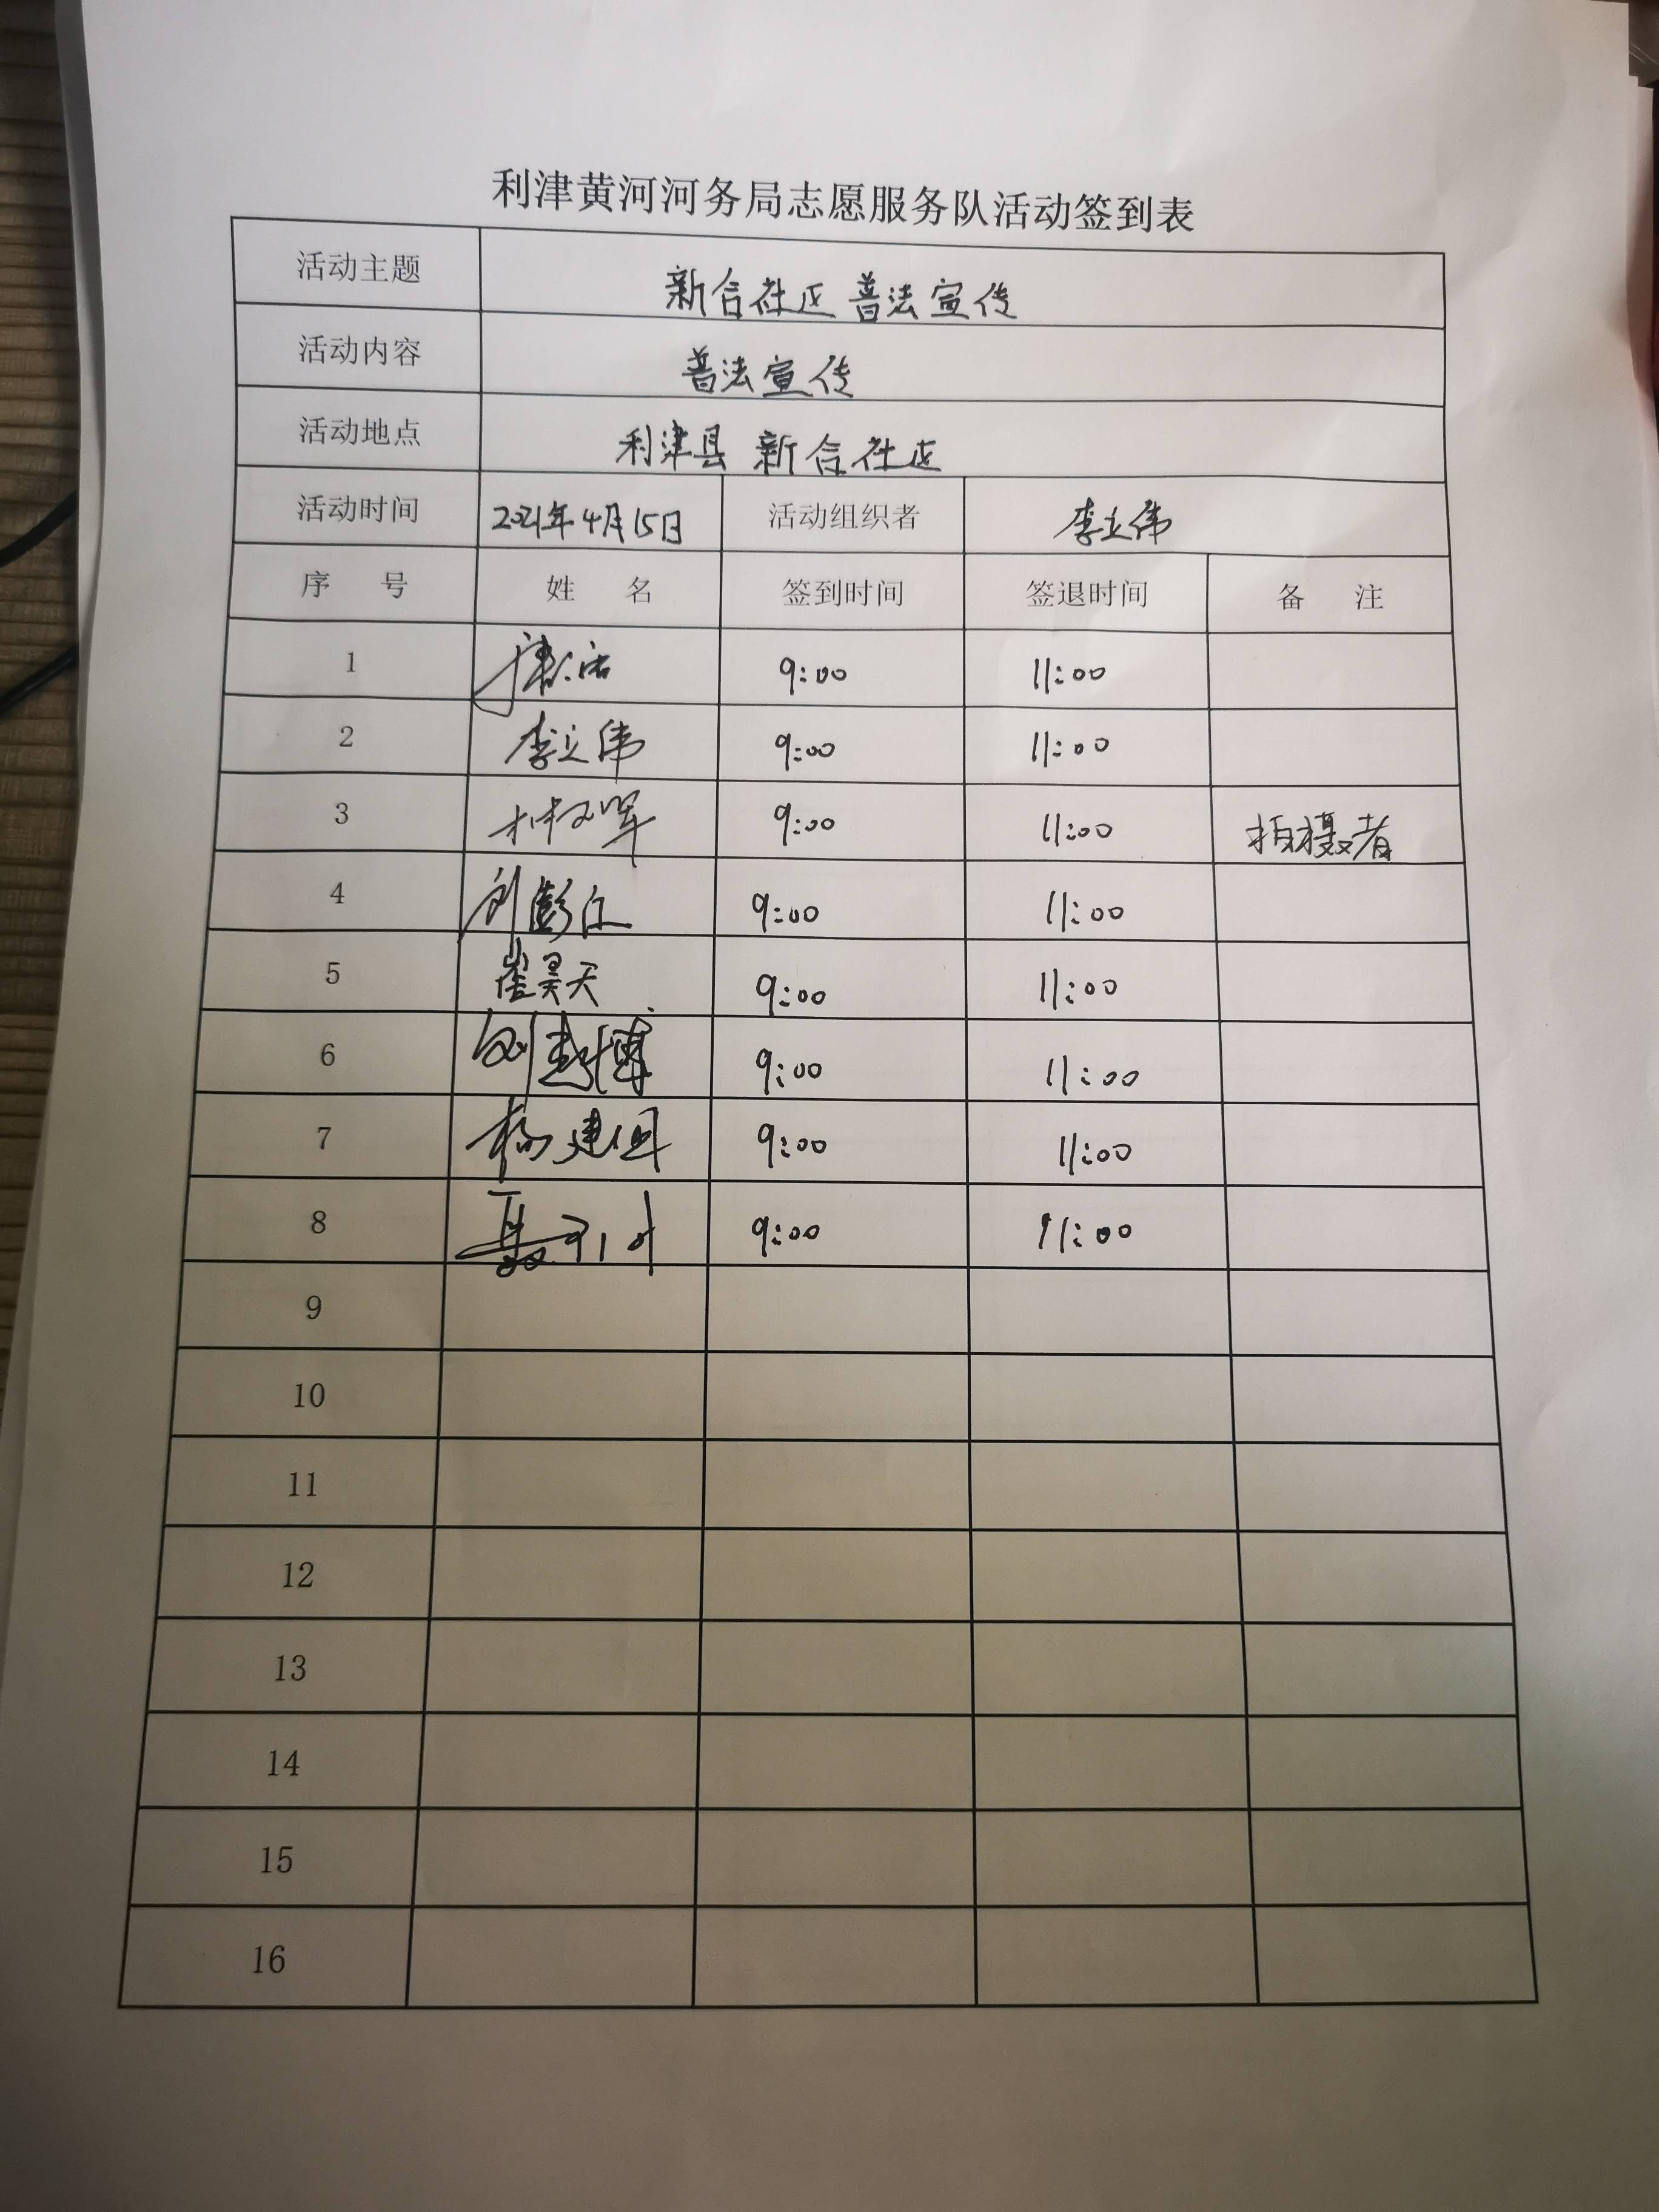 利津黄河河务局志愿服务队活动签到表
活动主题 新合社区 普法宣传
活动内容 普法宣传
活动地点 利津县 新合社区
活动时间 2021年4月15日 活动组织者 李立伟
序号 姓名 签到时间 签退时间 备注
1 9:00 11:00
2 李立伟 9:00 11:00
3 9:00 11:00 拍摄者
4 9:00 11:00
5 崔昊天 9:00 11:00
6 9:00 11:00
7 9:00 11:00
8 9:00 11:00
9
10
11
12
13
14
15
16